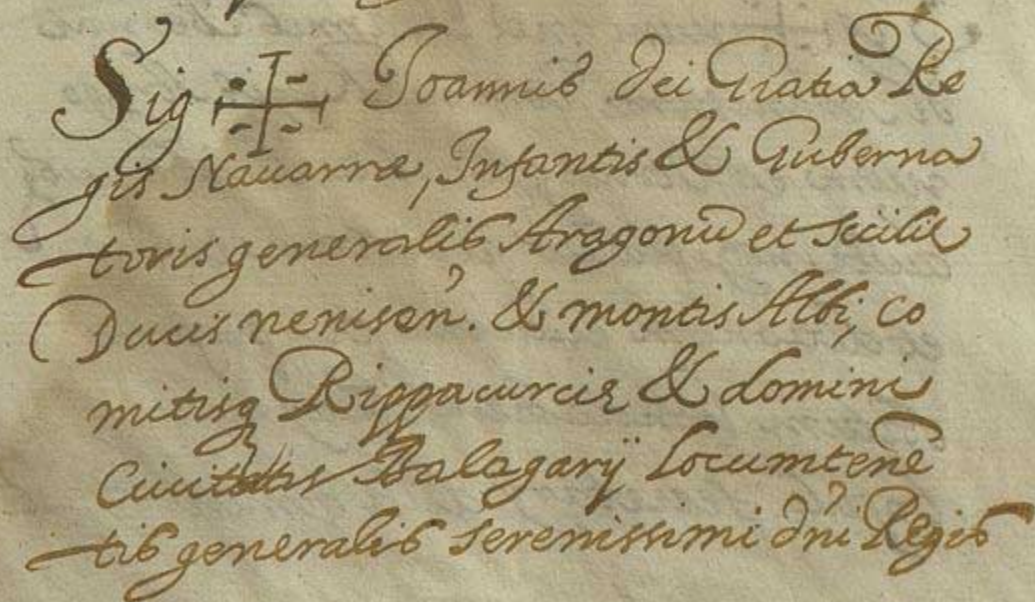 Sig ✠ Joannis dei Gratia Re
gis Nauarræ, Infantis & Guberna
toris generalis Aragonũ et Sicilie
Ducis nemisen̉. & montis Albi, co
mitisq Rippacurcię & domini
Ciuitatis Balagarÿ Locumtenẽ
tis generalis serenissimi dn̉i Regis